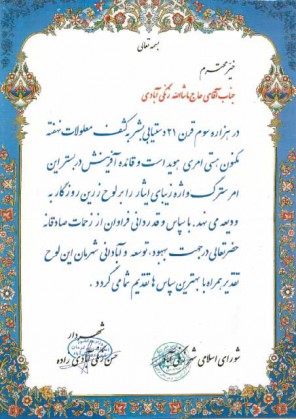 بسمه تعالی
خیر محترم
جناب آقای حاج ماشاالله زنگی آبادی
در هزاره سوم قرن ۲۱ دستیابی بشر به کشف معلولات نهفته
مکنون هستی امری هویداست و قائده آفرینش در بستر این
امر سترگ واژه زیبای ایثار را بر لوح زرین روزگار به
ودیعه می نهد. با سپاس و قدردانی فراوان از زحمات صادقانه
حضرتعالی در جهت بهبود، توسعه و آبادانی شهرمان این لوح
تقدیر همراه با بهترین سپاس ها تقدیم شما می گردد.
شهردار
حسن زنگی آبادی زاده
شورای اسلامی شهر زنگی آباد